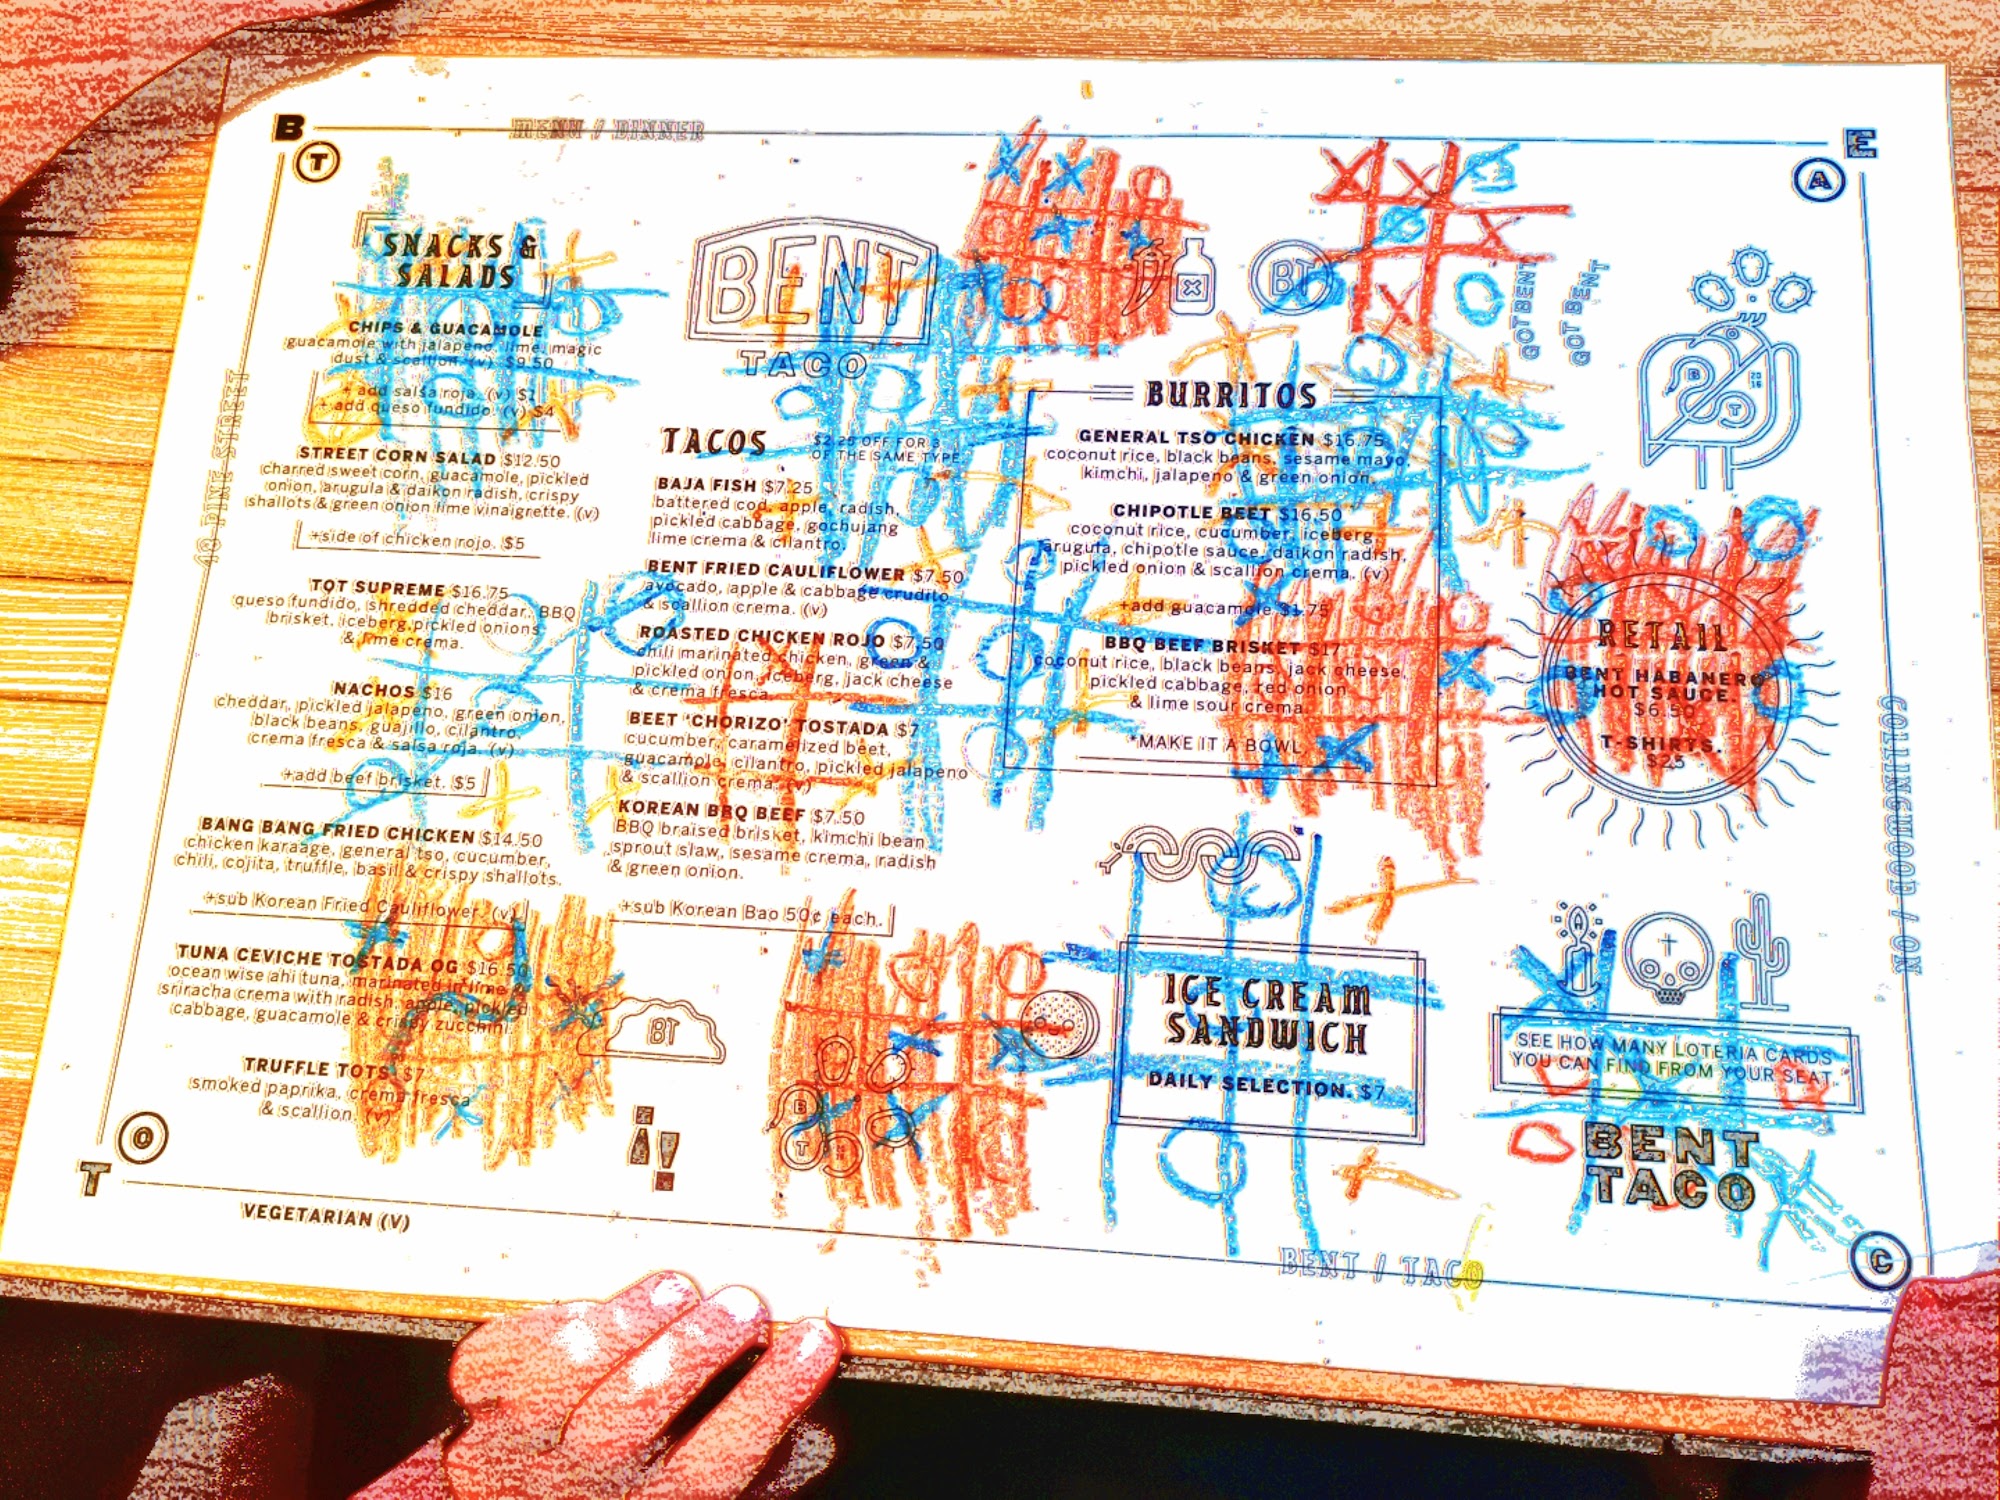 B
MENU / DINNER
E
T
A
48 PINE STREET
SNACKS &
SALADS
CHIPS & GUACAMOLE
guacamole with jalapeno, lime, magic
dust & scallion. (v) $9.50
+ add salsa roja. (v) $2
+ add queso fundido. (v) $4
STREET CORN SALAD $12.50
charred sweet corn, guacamole, pickled
onion, arugula & daikon radish, crispy
shallots & green onion lime vinaigrette. (v)
+side of chicken rojo. $5
TOT SUPREME $16.75
queso fundido, shredded cheddar, BBQ
brisket, iceberg, pickled onions
& lime crema.
NACHOS $16
cheddar, pickled jalapeno, green onion,
black beans, guajillo, cilantro,
crema fresca & salsa roja. (v)
+add beef brisket. $5
BANG BANG FRIED CHICKEN $14.50
chicken karaage, general tso, cucumber,
chili, cojita, truffle, basil & crispy shallots.
+sub Korean Fried Cauliflower. (v)
TUNA CEVICHE TOSTADA OG $16.50
ocean wise ahi tuna, marinated in lime &
sriracha crema with radish, apple, pickled
cabbage, guacamole & crispy zucchini.
TRUFFLE TOTS $7
smoked paprika, crema fresca
& scallion. (v)
BENT
TACO
TACOS
$2.25 OFF FOR 3
OF THE SAME TYPE.
BAJA FISH $7.25
battered cod, apple, radish,
pickled cabbage, gochujang
lime crema & cilantro.
BENT FRIED CAULIFLOWER $7.50
avocado, apple & cabbage crudito
& scallion crema. (v)
ROASTED CHICKEN ROJO $7.50
chili marinated chicken, green &
pickled onion, iceberg, jack cheese
& crema fresca.
BEET 'CHORIZO' TOSTADA $7
cucumber, caramelized beet,
guacamole, cilantro, pickled jalapeno
& scallion crema. (v)
KOREAN BBQ BEEF $7.50
BBQ braised brisket, kimchi bean
sprout slaw, sesame crema, radish
& green onion.
+sub Korean Bao 50¢ each.
BT
B
T
BT
GOT BENT
GOT BENT
BURRITOS
GENERAL TSO CHICKEN $16.75
coconut rice, black beans, sesame mayo,
kimchi, jalapeno & green onion.
CHIPOTLE BEET $16.50
coconut rice, cucumber, iceberg,
arugula, chipotle sauce, daikon radish,
pickled onion & scallion crema. (v)
+add guacamole $1.75
BBQ BEEF BRISKET $17
coconut rice, black beans, jack cheese,
pickled cabbage, red onion
& lime sour crema.
*MAKE IT A BOWL
ICE CREAM
SANDWICH
DAILY SELECTION. $7
B
20
16
T
RETAIL
BENT HABANERO
HOT SAUCE.
$6.50
T-SHIRTS.
$25
SEE HOW MANY LOTERIA CARDS
YOU CAN FIND FROM YOUR SEAT.
BENT
TACO
COLLINGWOOD / ON
O
T
VEGETARIAN (V)
BENT / TACO
C